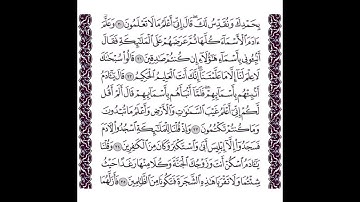 بِحَمْدِكَ وَنُقَدِّسُ لَكَ قَالَ إِنِّي أَعْلَمُ مَا لَا تَعْلَمُونَ ٣٠ وَعَلَّمَ
ءَادَمَ الْأَسْمَاءَ كُلَّهَا ثُمَّ عَرَضَهُمْ عَلَى الْمَلَٰئِكَةِ فَقَالَ
أَنْبِئُونِي بِأَسْمَاءِ هَٰؤُلَاءِ إِن كُنتُمْ صَٰدِقِينَ ٣١ قَالُوا سُبْحَٰنَكَ
لَا عِلْمَ لَنَا إِلَّا مَا عَلَّمْتَنَا إِنَّكَ أَنتَ الْعَلِيمُ الْحَكِيمُ ٣٢ قَالَ يَٰـَٔادَمُ
أَنْبِئْهُم بِأَسْمَائِهِمْ فَلَمَّا أَنْبَأَهُم بِأَسْمَائِهِمْ قَالَ أَلَمْ أَقُل
لَّكُمْ إِنِّي أَعْلَمُ غَيْبَ السَّمَٰوَٰتِ وَالْأَرْضِ وَأَعْلَمُ مَا تُبْدُونَ
وَمَا كُنتُمْ تَكْتُمُونَ ٣٣ وَإِذْ قُلْنَا لِلْمَلَٰئِكَةِ اسْجُدُوا لِءَادَمَ
فَسَجَدُوا إِلَّا إِبْلِيسَ أَبَىٰ وَاسْتَكْبَرَ وَكَانَ مِنَ الْكَٰفِرِينَ ٣٤ وَقُلْنَا
يَٰـَٔادَمُ اسْكُنْ أَنتَ وَزَوْجُكَ الْجَنَّةَ وَكُلَا مِنْهَا رَغَدًا حَيْثُ
شِئْتُمَا وَلَا تَقْرَبَا هَٰذِهِ الشَّجَرَةَ فَتَكُونَا مِنَ الظَّٰلِمِينَ ٣٥ فَأَزَلَّهُمَا